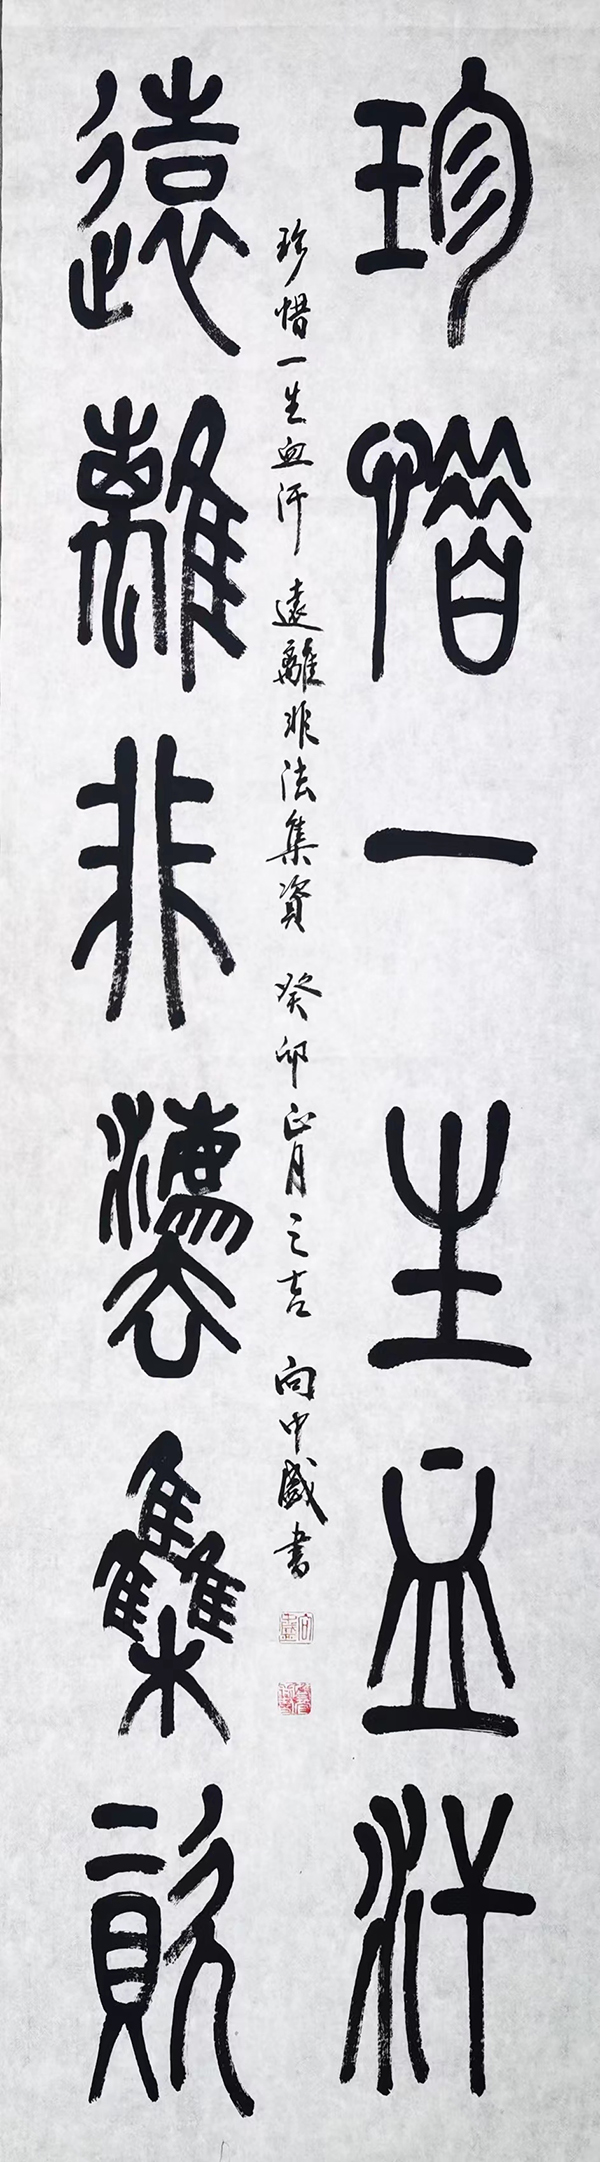 珍惜一生血汗
遠離非灋集資
珍惜一生血汗 遠離非法集資 癸卯正月之吉 向中盛書